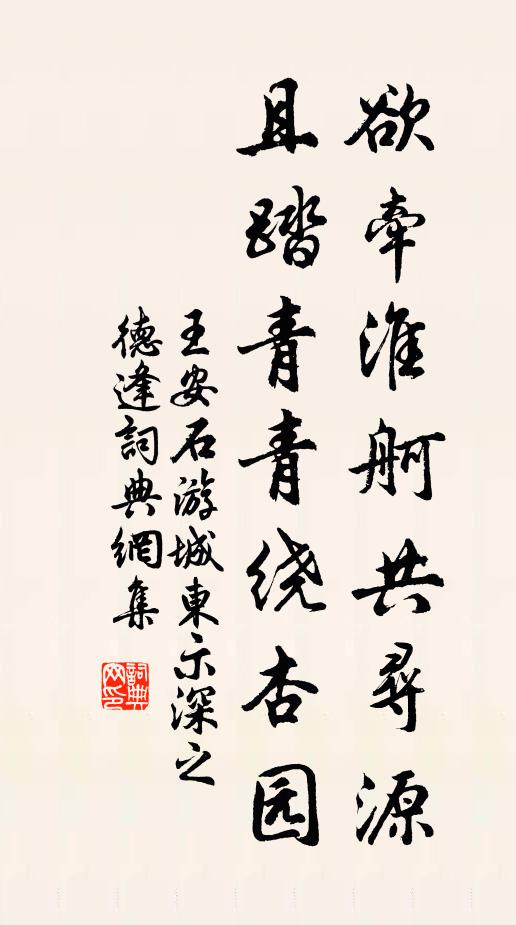 欲牵淮舸共尋源
且踏青青绕杏园
王安石游城東示深之
德逢詞典網集
詞典网印